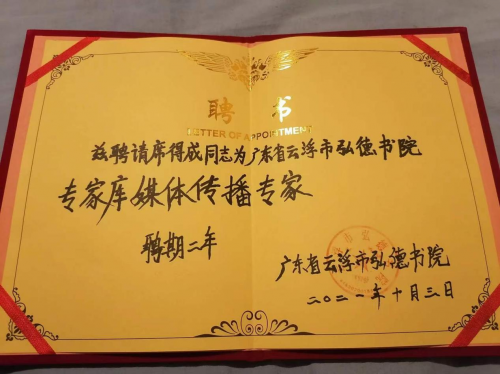 聘 书
LETTER OF APPOINTMENT
兹聘请席得成同志为广东省云浮市弘德书院
专家库媒体传播专家
聘期二年
广东省云浮市弘德书院
二〇二一年十月三日